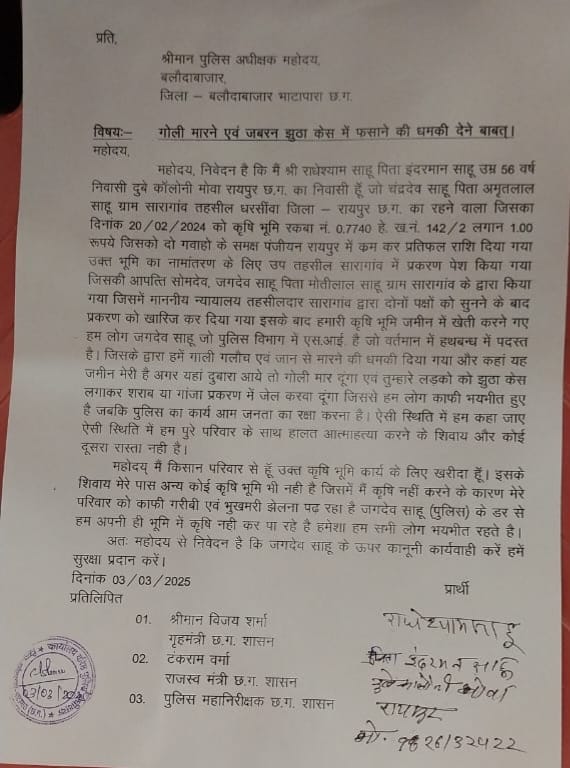 प्रति,
श्रीमान पुलिस अधीक्षक महोदय,
बलौदाबाजार,
जिला – बलौदाबाजार भाटापारा छ.ग.
विषयः– गोली मारने एवं जबरन झुठा केस में फसाने की धमकी देने बाबत्।
महोदय,
महोदय, निवेदन है कि मैं श्री राधेश्याम साहू पिता इंदरमान साहू उम्र 56 वर्ष
निवासी दुबे कॉलोनी मोवा रायपुर छ.ग. का निवासी हूँ जो चंद्रदेव साहू पिता अमृतलाल
साहू ग्राम सारागांव तहसील धरसींवा जिला – रायपुर छ.ग. का रहने वाला जिसका
दिनांक 20/02/2024 को कृषि भूमि रकबा नं. 0.7740 हे. ख.नं. 142/2 लगान 1.00
रूपये जिसको दो गवाहो के समक्ष पंजीयन रायपुर में कम कर प्रतिफल राशि दिया गया
उक्त भूमि का नामांतरण के लिए उप तहसील सारागांव में प्रकरण पेश किया गया
जिसकी आपत्ति सोमदेव, जगदेव साहू पिता मोतीलाल साहू ग्राम सारागांव के द्वारा किया
गया जिसमें माननीय न्यायालय तहसीलदार सारागांव द्वारा दोनों पक्षों को सुनने के बाद
प्रकरण को खारिज कर दिया गया इसके बाद हमारी कृषि भूमि जमीन में खेती करने गए
हम लोग जगदेव साहू जो पुलिस विभाग में एस.आई. है जो वर्तमान में हथबन्ध में पदस्त
है। जिसके द्वारा हमें गाली गलौच एवं जान से मारने की धमकी दिया गया और कहां यह
जमीन मेरी है अगर यहां दुबारा आये तो गोली मार दूंगा एवं तुम्हारे लडको को झुठा केस
लगाकर शराब या गांजा प्रकरण में जेल करवा दूंगा जिससे हम लोग काफी भयभीत हुए
है जबकि पुलिस का कार्य आम जनता का रक्षा करना है। ऐसी स्थिति में हम कहा जाए
ऐसी स्थिति में हम पुरे परिवार के साथ हालत आत्माहत्या करने के शिवाय और कोई
दूसरा रास्ता नही है।
महोदय् मैं किसान परिवार से हूँ उक्त कृषि भूमि कार्य के लिए खरीदा हूँ। इसके
शिवाय मेरे पास अन्य कोई कृषि भूमि भी नही है जिसमें मैं कृषि नहीं करने के कारण मेरे
परिवार को काफी गरीबी एवं भुखमरी झेलना पढ रहा है जगदेव साहू (पुलिस) के डर से
हम अपनी ही भूमि में कृषि नही कर पा रहे है हमेशा हम सभी लोग भयभीत रहते है।
अतः महोदय से निवेदन है कि जगदेव साहू के ऊपर कानूनी कार्यवाही करें हमें
सुरक्षा प्रदान करें।
दिनांक 03/03/2025
प्रार्थी
प्रतिलिपित
01. श्रीमान विजय शर्मा
गृहमंत्री छ.ग. शासन
02. टंकराम वर्मा
राजस्व मंत्री छ.ग. शासन
03. पुलिस महानिरीक्षक छ.ग. शासन
राधेश्याम साहू
पिता इंदरमन साहू
दुबे कालोनी मोवा
रायपुर
मो.